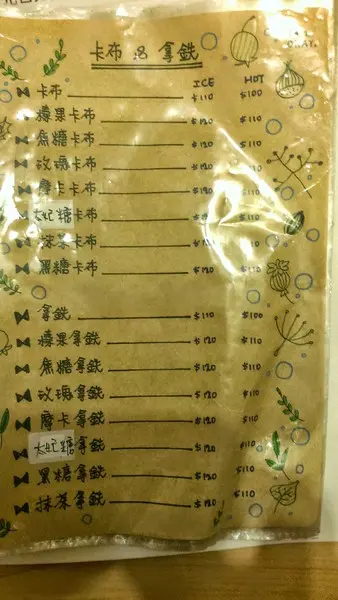 卡布 & 拿鐵
ICE HOT
卡布 $110 $100
榛果卡布 $120 $110
焦糖卡布 $120 $110
玫瑰卡布 $120 $110
摩卡卡布 $120 $110
太妃糖卡布 $110
抹茶卡布 $120 $110
黑糖卡布 $120 $110
拿鐵 $110 $100
榛果拿鐵 $120 $110
焦糖拿鐵 $120 $110
玫瑰拿鐵 $120 $110
摩卡拿鐵 $120 $110
太妃糖拿鐵 $120 $110
黑糖拿鐵 $120 $110
抹茶拿鐵 $120 $110